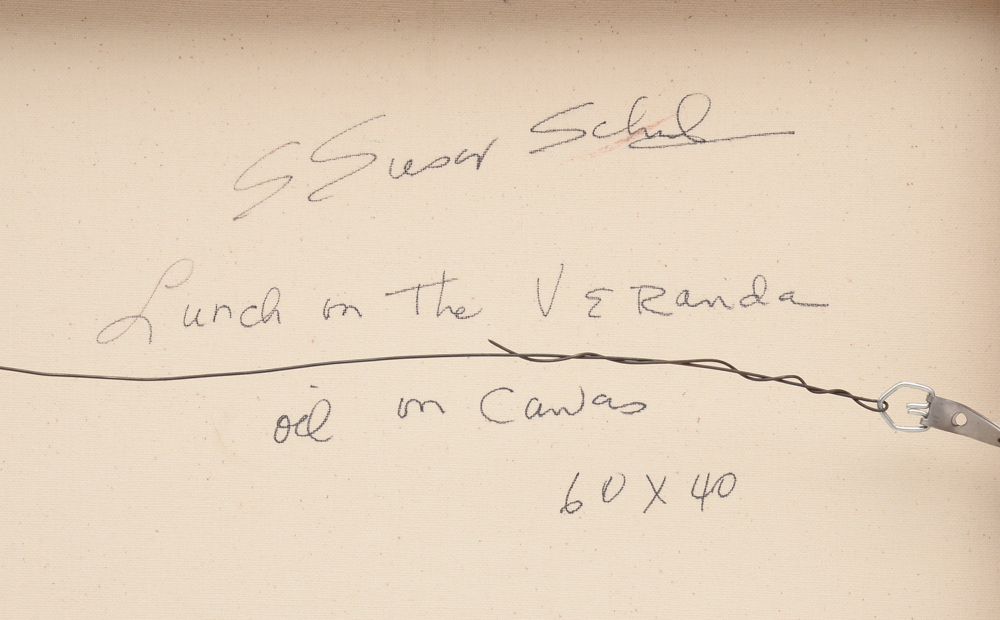 S Susan
Lunch on The VERanda
oil on Canvas
60 X 40